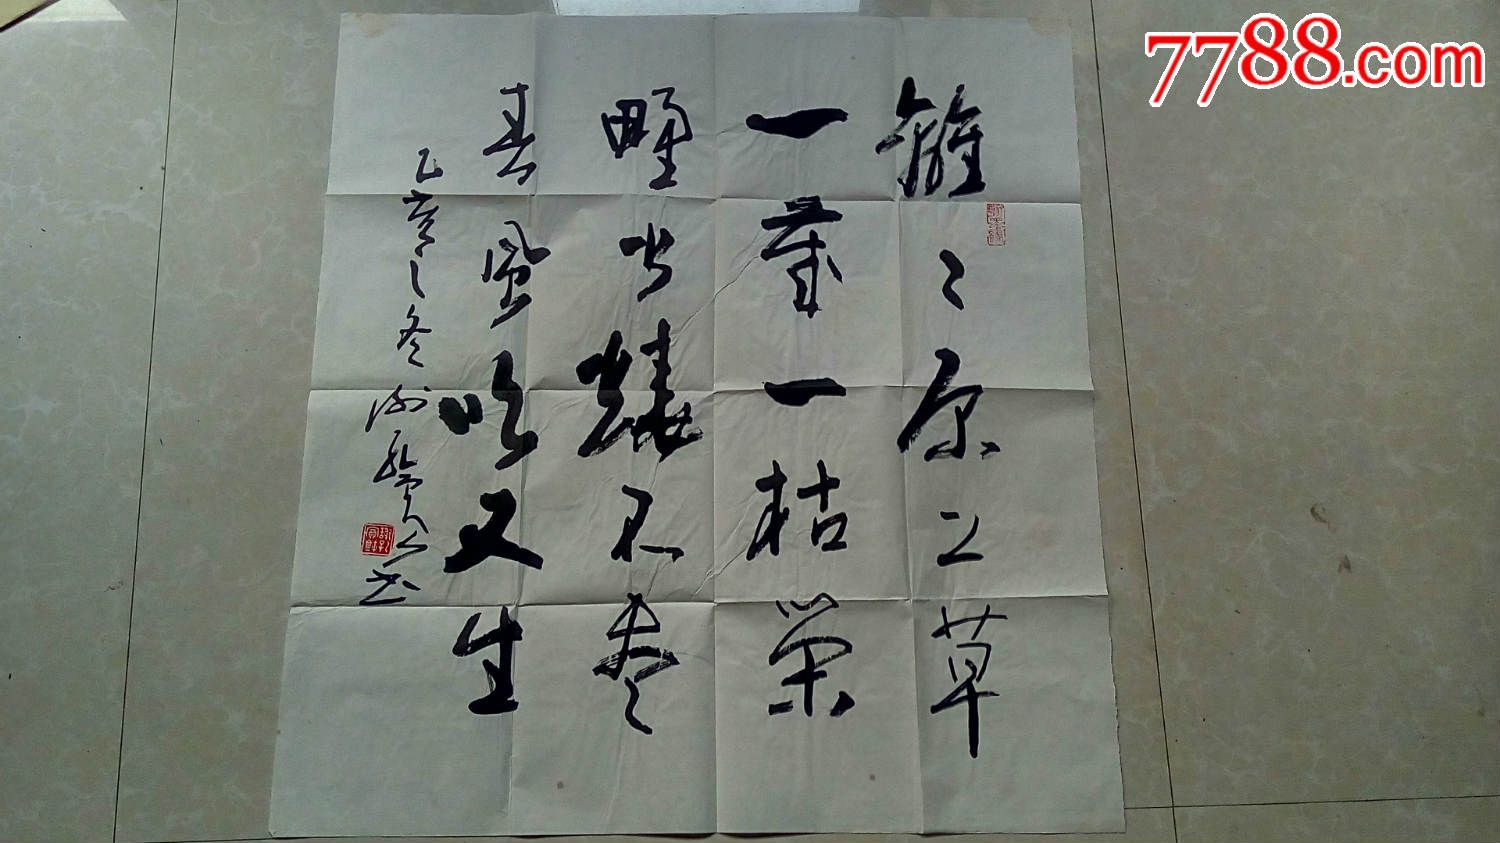 離〻原上草
一歲一枯榮
野火燒不盡
春風吹又生
乙亥之冬谢孔賓书
7788.com